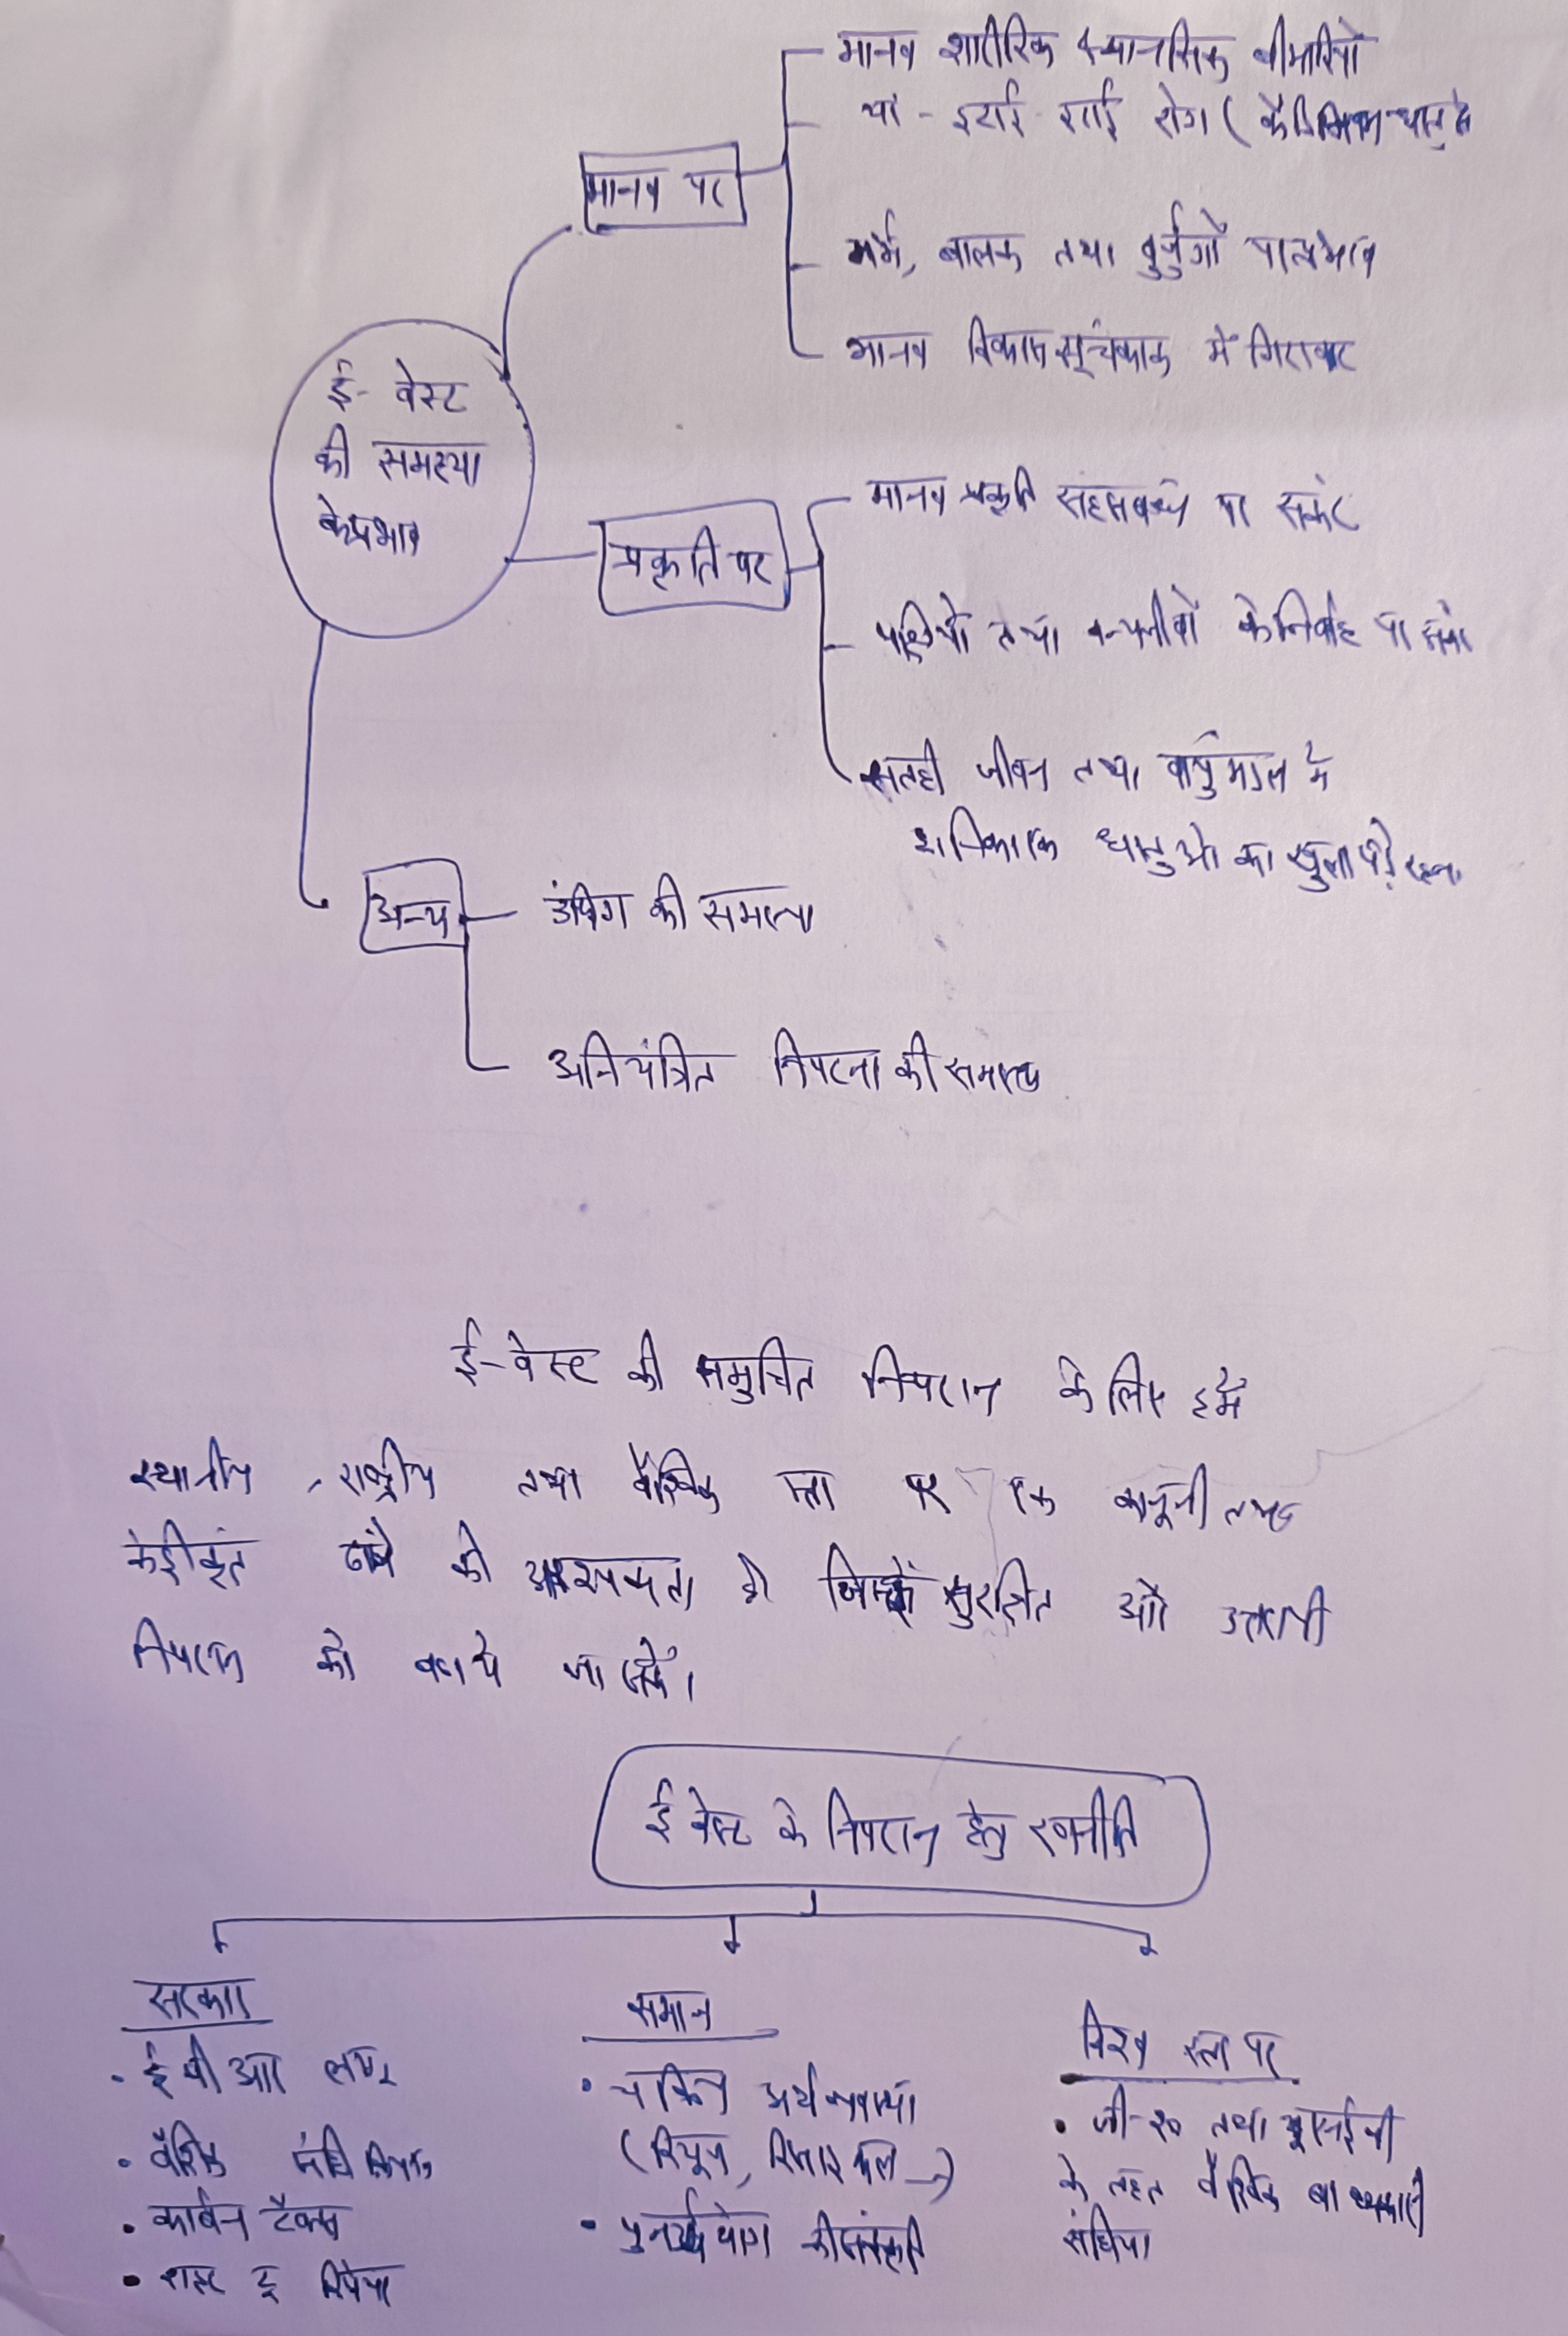 मानव शारीरिक व मानसिक बीमारियों
यों - इटाई-इटाई रोग ( कैडमियम धातु से
मानव पर
गर्भ, बालक तथा बुर्जुगों पर प्रभाव
मानव विकास सूचकांक में गिरावट
ई- वेस्ट
की समस्या
के प्रभाव
मानव प्रकृति सहसंबन्ध पर संकट
प्रकृति पर
पक्षियों तथा वन्यजीवों के निर्वाह पर संकट
सतही जीवन तथा वायुमंडल में
धातुओं का खुला
अन्य
डंपिंग की समस्या
अनियंत्रित निपटना की समस्या
ई-वेस्ट की समुचित निपटान के लिए हमें
स्थानीय, राष्ट्रीय तथा वैश्विक स्तर पर एक कानूनी तथा
केंद्रीकृत ढांचे की आवश्यकता है जिससे सुरक्षित और
निपटान को बनाये जा सकें।
ई वेस्ट के निपटान हेतु रणनीति
सरकार
समाज
विश्व स्तर पर
• ई पी आर लागू
• वैश्विक संधि
• कार्बन टैक्स
• राइट टू रिपेयर
• चक्रिय अर्थव्यवस्था
(रियूज, रिसाइकल —)
• पुनर्उपयोग की संस्कृति
• जी-20 तथा यूएनईपी
के तहत वैश्विक बाध्यकारी
संधिया